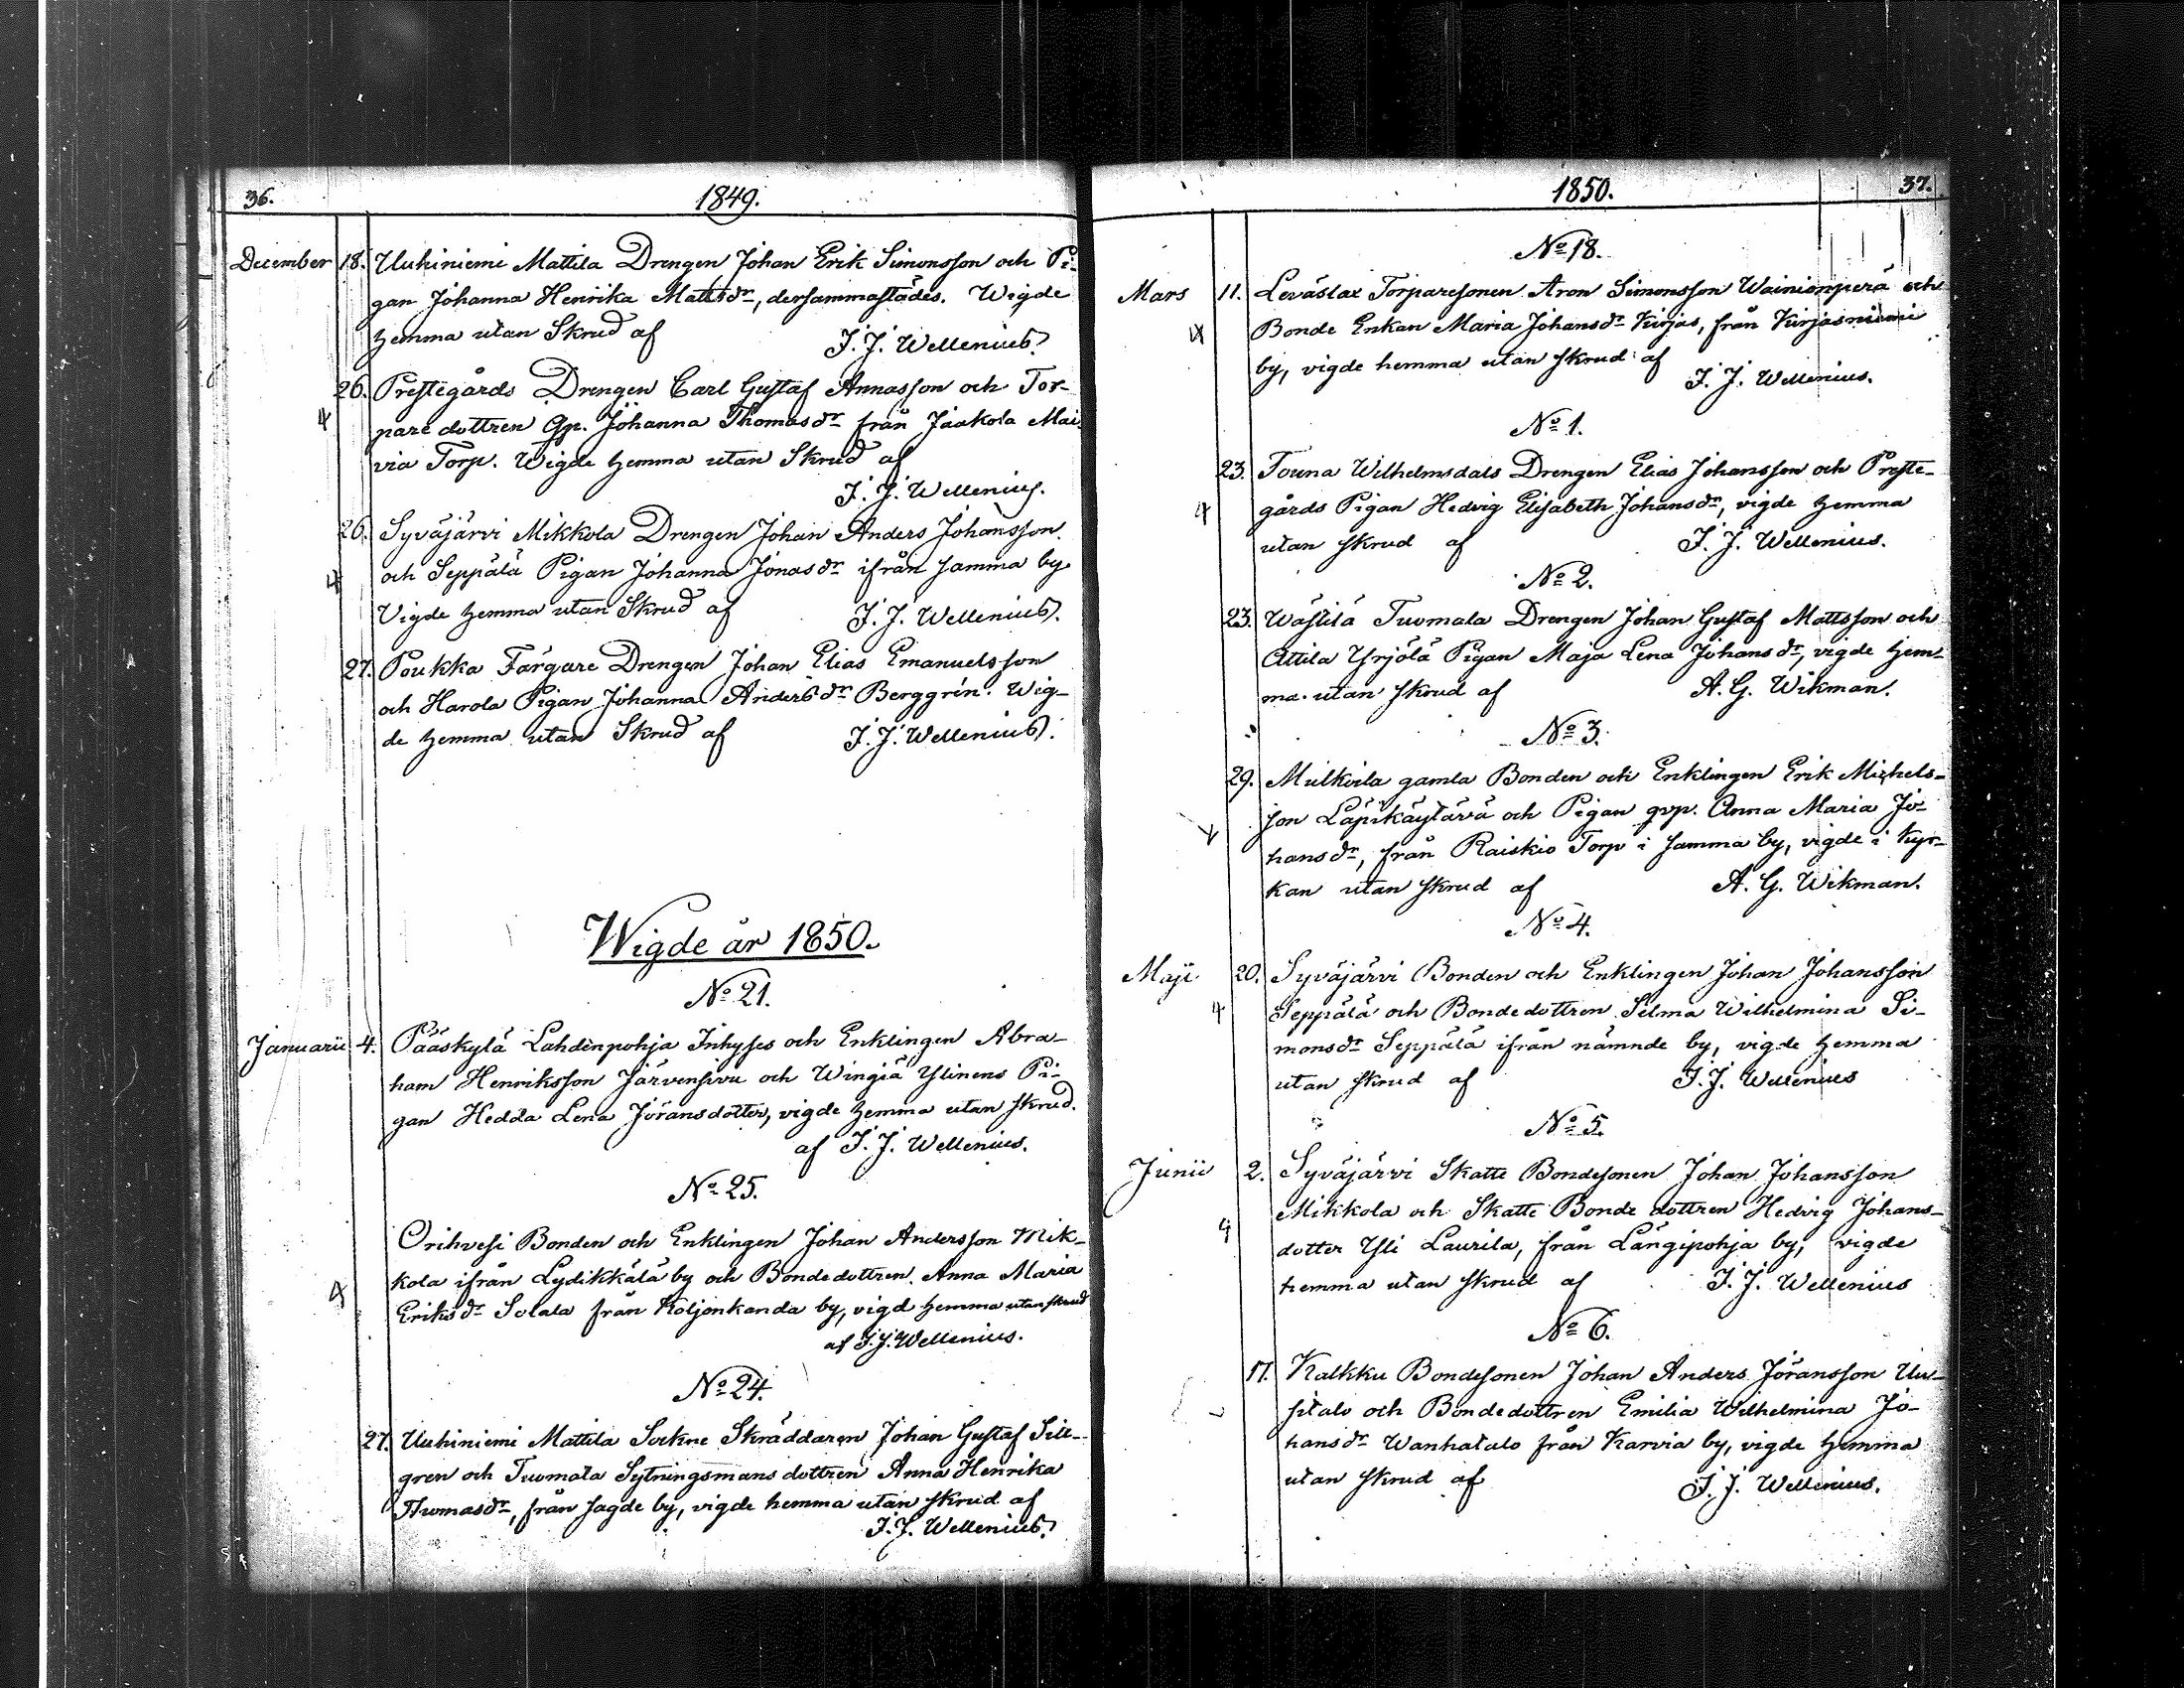 36.
1849.
December 18. Uuhiniemi Mattila Drengen Johan Erik Simonsson och Pi-
gan Johanna Henrika Mattsdr, dersammastädes. Wigde
hemma utan Skrud af J. J. Wellenius.
26. Prestegårds Drengen Carl Gustaf Annasson och Tor-
pare dottren Qp. Johanna Thomasdr från Jaakola Mai-
via Torp. Wigde hemma utan Skrud af
J. J. Wellenius.
26. Syväjärvi Mikkola Drengen Johan Anders Johansson
och Seppälä Pigan Johanna Jonasdr ifrån samma by.
Vigde hemma utan Skrud af J. J. Wellenius.
27. Poukka Färgare Drengen Johan Elias Emanuelsson
och Harola Pigan Johanna Andersdr Berggrén. Wig-
de hemma utan Skrud af J. J. Wellenius.
Wigde år 1850.
No 21.
Januarii 4. Pääskylä Lahdenpohja Inhyses och Enklingen Abra-
ham Henriksson Järvensivu och Wingiä Ylinens Pi-
gan Hedda Lena Jöransdotter, vigde hemma utan skrud.
af J. J. Wellenius.
No 25.
Orihvesi Bonden och Enklingen Johan Andersson Mik-
kola ifrån Lydikkälä by och Bondedottren Anna Maria
Eriksdr Solala från Koljonkanda by, vigd hemma utan skrud
af J. J. Wellenius.
No 24.
27. Uuhiniemi Mattila Sockne Skräddaren Johan Gustaf Sill-
gren och Tuomala Sytningsmans dottren Anna Henrika
Thomasdr, från sagde by, vigde hemma utan skrud af
J. J. Wellenius.
1850.
37.
No 18.
Mars 11. Leväslax Torparesonen Aron Simonsson Wainionperä och
Bonde Enkan Maria Johansdr Kirjas, från Kirjasniemi
by, vigde hemma utan skrud af J. J. Wellenius.
No 1.
23. Touna Wilhelmsdals Drengen Elias Johansson och Preste-
gårds Pigan Hedvig Elisabeth Johansdr, vigde hemma
utan skrud af J. J. Wellenius.
No 2.
23. Wästilä Tuomala Drengen Johan Gustaf Mattsson och
Attila Yrjölä Pigan Maja Lena Johansdr, vigde hem-
ma utan skrud af A. G. Wikman.
No 3.
29. Mulkoila gamla Bonden och Enklingen Erik Michels-
son Läpikäytävä och Pigan qvp. Anna Maria Jo-
hansdr, från Raiskio Torp i samma by, vigde i Kyr-
kan utan skrud af A. G. Wikman.
No 4.
Maji 20. Syväjärvi Bonden och Enklingen Johan Johansson
Seppälä och Bondedottren Selma Wilhelmina Si-
monsdr Seppälä ifrån nämnde by, vigde hemma
utan skrud af J. J. Wellenius
No 5.
Junii 2. Syväjärvi Skatte Bondesonen Johan Johansson
Mikkola och Skatte Bonde dottren Hedvig Johans-
dotter Yli Laurila, från Längipohja by, vigde
hemma utan skrud af J. J. Wellenius
No 6.
17. Kalkku Bondesonen Johan Anders Jöransson Uu-
sitalo och Bondedottren Emilia Wilhelmina Jo-
hansdr Wanhatalo från Karvia by, vigde hemma
utan skrud af J. J. Wellenius.